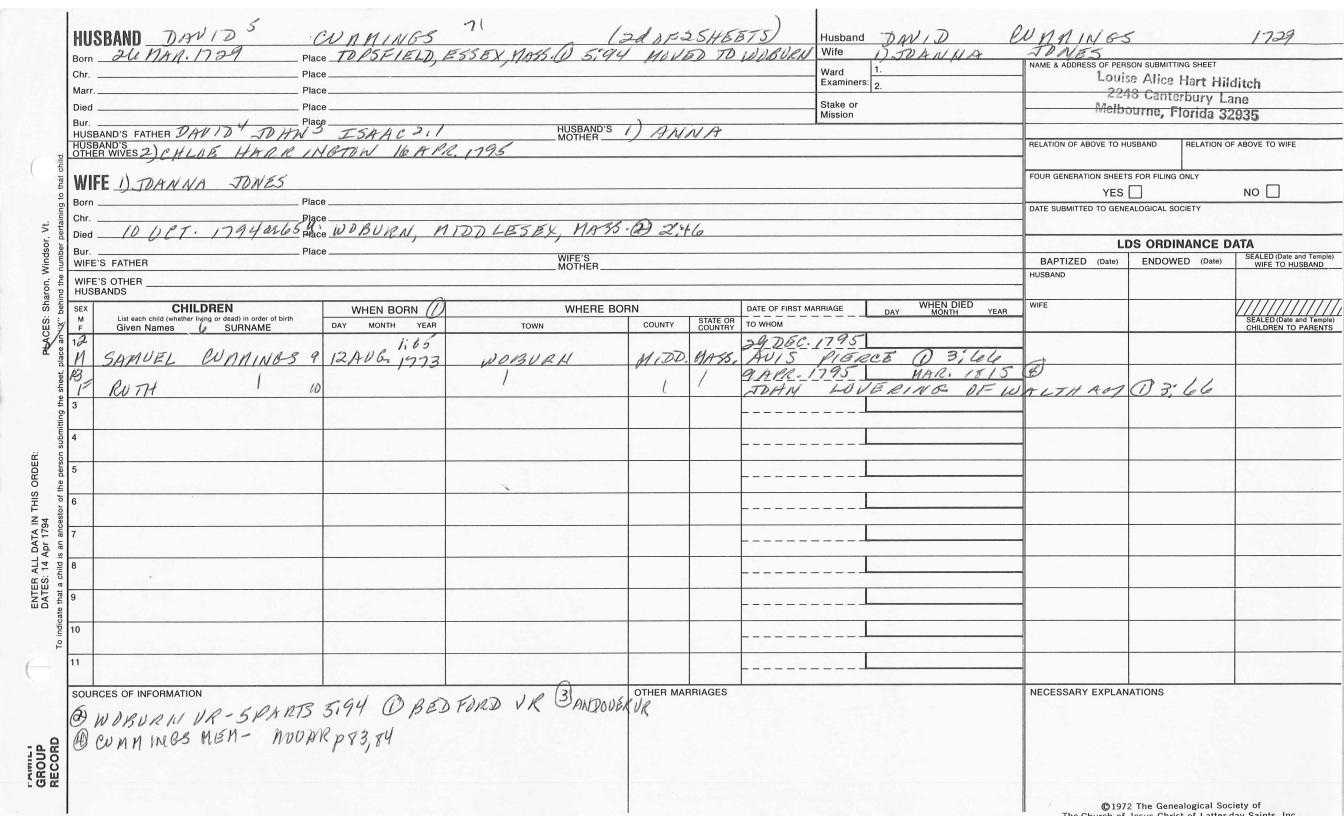 HUSBAND DAVID 5 CUMMINGS 71 (2d OF 2 SHEETS)
Born 26 MAR. 1729 Place TOPSFIELD, ESSEX, MASS. ① 5:94 MOVED TO WOBURN
Chr. Place
Marr. Place
Died Place
Bur. Place
HUSBAND'S FATHER DAVID 4 JOHN 3 ISAAC 2,1 HUSBAND'S MOTHER 1) ANNA
HUSBAND'S OTHER WIVES 2) CHLOE HARRINGTON 16 APR. 1795
Husband DAVID CUMMINGS 1729
Wife 1) JOANNA JONES
Ward Examiners: 1.
2.
Stake or Mission
NAME & ADDRESS OF PERSON SUBMITTING SHEET
Louise Alice Hart Hilditch
2248 Canterbury Lane
Melbourne, Florida 32935
RELATION OF ABOVE TO HUSBAND RELATION OF ABOVE TO WIFE
FOUR GENERATION SHEETS FOR FILING ONLY
YES NO
DATE SUBMITTED TO GENEALOGICAL SOCIETY
WIFE 1) JOANNA JONES
Born Place
Chr. Place
Died 10 OCT. 1794 Place WOBURN, MIDDLESEX, MASS. ② 2:46
Bur. Place
WIFE'S FATHER WIFE'S MOTHER
WIFE'S OTHER HUSBANDS
LDS ORDINANCE DATA
BAPTIZED (Date) ENDOWED (Date) SEALED (Date and Temple) WIFE TO HUSBAND
HUSBAND
WIFE
SEALED (Date and Temple) CHILDREN TO PARENTS
SEX M F CHILDREN WHEN BORN ① WHERE BORN DATE OF FIRST MARRIAGE WHEN DIED
List each child (whether living or dead) in order of birth
Given Names 6 SURNAME DAY MONTH YEAR TOWN COUNTY STATE OR COUNTRY TO WHOM DAY MONTH YEAR
1 1:65 29 DEC. 1795
M SAMUEL CUMMINGS 9 12 AUG. 1773 WOBURN MIDD. MASS. AVIS PIERCE ① 3:66
9 APR. 1795 MAR. 1815 ④
F RUTH 10 JOHN LOVERING OF WALTHAM ① 3:66
3
4
5
6
7
8
9
10
11
SOURCES OF INFORMATION
② WOBURN VR - 5 PARTS 5:94 ① BEDFORD VR ③ ANDOVER VR
④ CUMMINGS MEM - p 83,84
OTHER MARRIAGES
NECESSARY EXPLANATIONS
©1972 The Genealogical Society of
The Church of Jesus Christ of Latter-day Saints, Inc.
PLACES: Sharon, Windsor, Vt.
ENTER ALL DATA IN THIS ORDER:
DATES: 14 Apr 1794
To indicate that a child is an ancestor of the person submitting the sheet, place an "X" behind the number pertaining to that child.
FAMILY GROUP RECORD